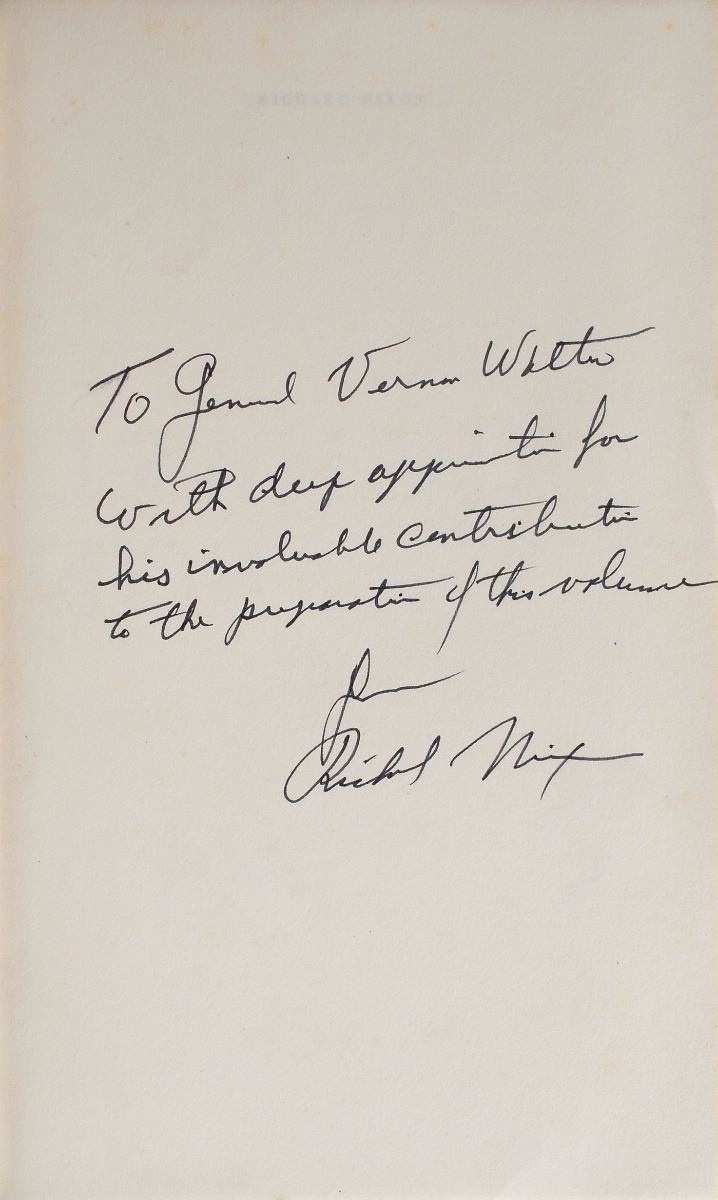 RICHARD NIXON
To General Vernon Walters
With deep appreciation for
his invaluable contribution
to the preparation of this volume
from
Richard Nixon